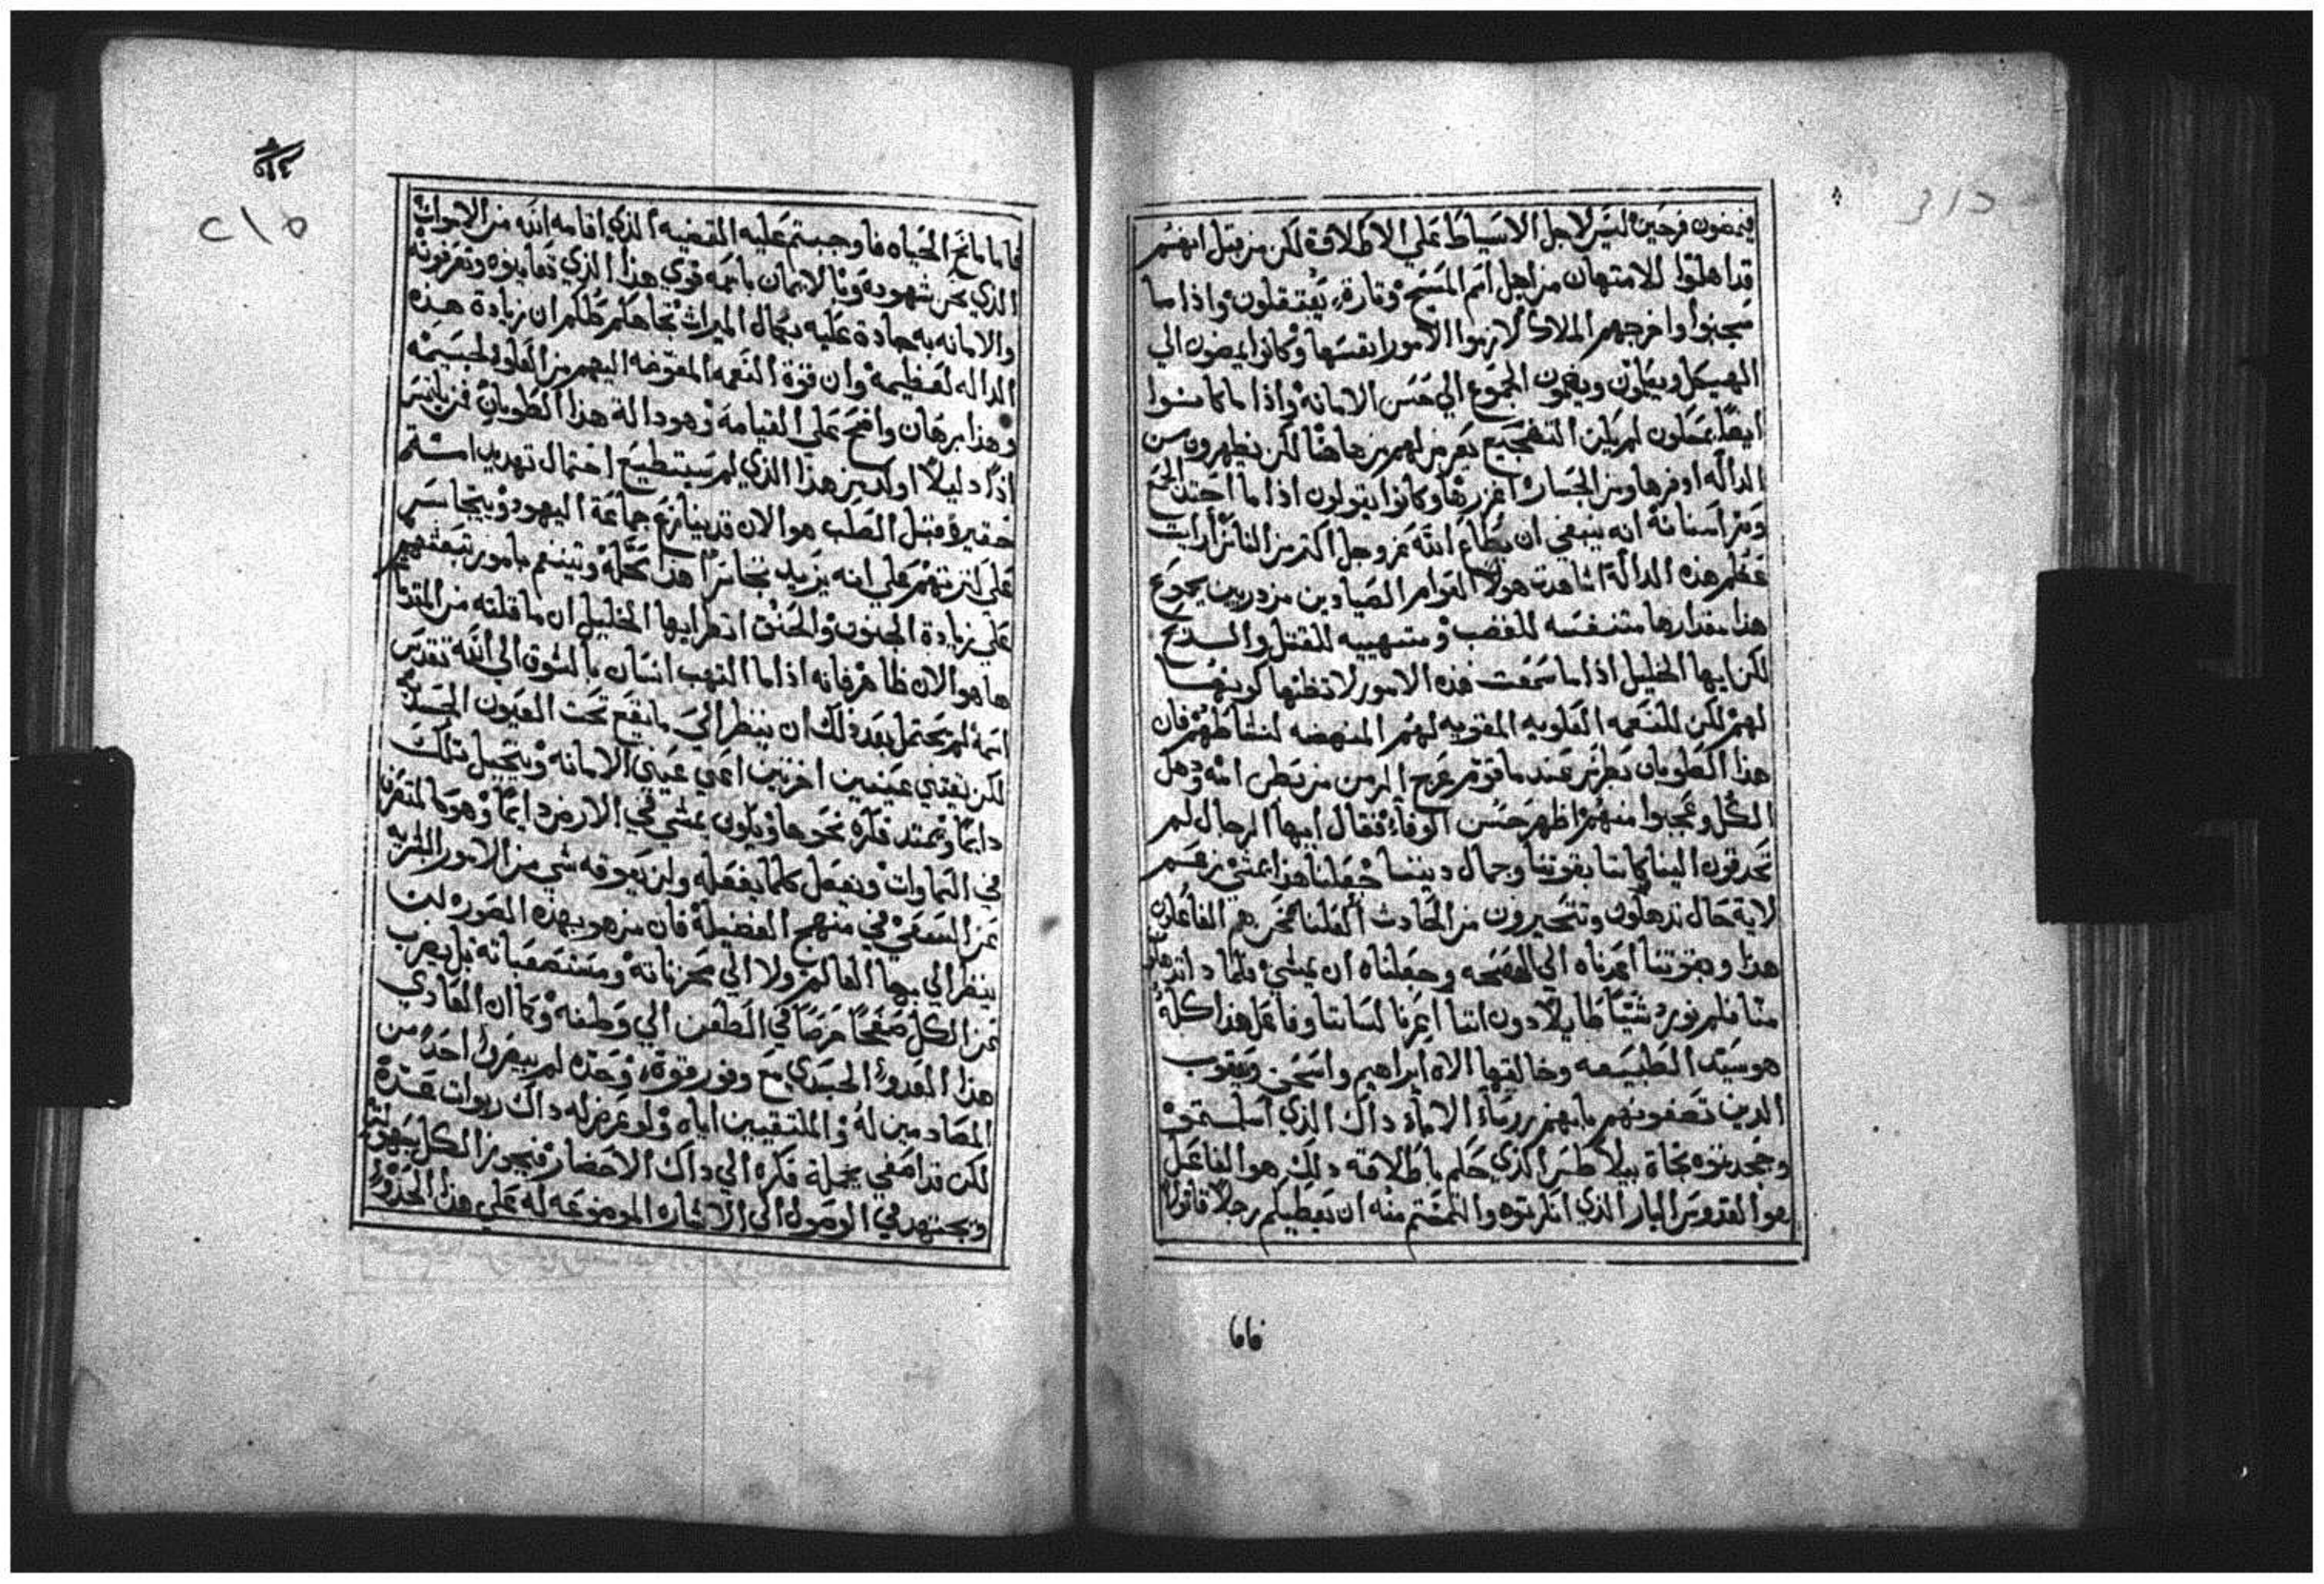 ينهضون فرحين ليس لاجل الاسياط على الاطلاق لكن من قبل انهم
قد اهلوا للامتهان من اجل اسم المسيح وتارة يعتقلون واذا ما
سجنوا واخرجهم الملاك لازموا الامور انفسها وكانوا يمضون الي
الهيكل ويعلمون ويضمون الجموع الي حسن الامانه واذا ما كانوا
ايضا يمتلون لم يكن التفجيع يعرض لهم من هاهنا لكن يظهرون من
الداله اوفرها ومن الجسارة اغزرها وكانوا يقولون اذا ما احتد الجمع
واسنانه انه ينبغي ان يطاع الله عز وجل اكثر من الناس ارايت
عظم هذه الدالة اشاهدت هولا القوام الصيادين مزدريين بجموع
هذا مقدارها متنفسه للغضب ومتهييه للقتل والذبح
لكن ايها الخليل اذا ما سمعت هذه الامور لا تظنها كونها
لهم لكن للنعمه العلويه المقويه لهم المنهضه لنشاطهم فان
هذا الطوبان بطرس عندما قوم عرج الزمن من بطن امه وذهل
الكل وعجبوا منهم اظهر حسن الوفاء فقال ايها الرجال لم
تحدقون الينا كاننا بقوتنا وجمال ديننا جعلنا هذا يمشي زعم
لاية حال تذهلون وتتحيرون من الحادث العلنا نحن هم الفاعلون
هذا وبقوتنا اعدناه الي الصحه وجعلناه ان يمشي
منا فلم نورد شيئا طايلا دون اننا اعرنا لساننا وفاعل هذا كله
هو سيد الطبيعه وخالقها الاه ابراهيم واسحق ويعقوب
الدين تصفونهم بانهم رووساء الاباء داك الذي اسلمتموه
وجحدتموه تجاة بيلاطس الذي حكم باطلاقه دلك هو الفاعل
هو القدوس البار الذي انكرتموه والتمستم منه ان يعطيكم رجلا قاتولا
٥٥٥
٢١٥
فاما مانح الحياه فاوجبتم عليه القضيه الذي اقامه الله من الاموات
الذي نحن شهوده وبالايمان باسمه قوي هذا الذي تعاينوه وتعرفونه
والامانه به جادة عليه بكمال الميراث تجاهكم كلكم ان زيادة هذه
الداله لعظيمه وان قوة النعمه المفوضه اليهم من العلو لجسيمه
وهذا برهان واضح علي القيامه وهو دالة هذا الطوبان فمن يلتمس
اذا دليلا اوكد من هذا الذي لم يستطيع احتمال تهديد استتم
حقيرة قبل الصلب هو الان قد ينازع جماعة اليهود ويتجاسر
علي كثرتهم علي انه يزيد تجاسرا هذا محله وتينعم بامور تبعثهم
علي زيادة الجنون والحنق انظر ايها الخليل ان ما قلته من المتقدم
ها هو الان ظاهر فانه اذا ما التهب انسان بالشوق الي الله تقدس
اسمه لم يحتمل بعد ذلك ان ينظر الي ما يقع تحت العيون الجسدانيه
لكن يقتني عينين اخريين اعني عيني الامانه ويتخيل تلك
دايما ويمتد فكره نحوها ويكون يمشي في الارض دايما وهو كالمتصرف
في السماوات ويفعل كلما يفعله ولن يعوقه شي من الامور البشريه
عن السعي في منهج الفضيلة فان من هو بهذه الصوره لن
ينظر الي بها العالم ولا الي محزناته ومستصعباته بل يضرب
عن الكل صفحا حرصا في الظعن الي وطنه وكما ان الغادي
هذا العدو الجسدي مع وفور قوة وحده لم يبصروا احد من
المصادمين له والملتقيين اياه ولو عرض له داك ربوات عدة
لكن قد امضي بجملة فكره الي داك الاحضار فيجوز الكل بسهوله
ويجتهد في الوصول الي الاشاره الموضوعه له علي هذا الحذو